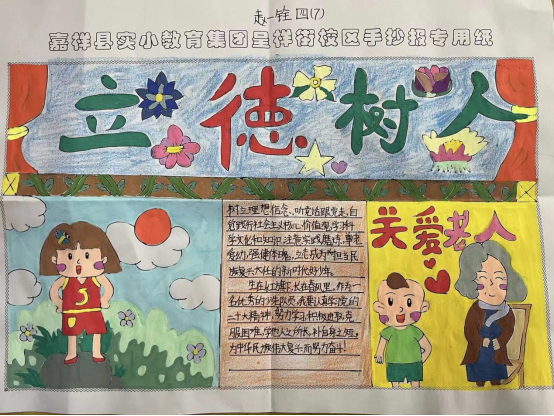 赵一铨 四(7)
嘉祥县实小教育集团呈祥街校区手抄报专用纸
立德树人
树立理想信念、听党话跟党走,自
觉践行社会主义核心价值观,学习科
学文化知识,注重实践磨炼,事
劳动,强健体魄,立志成为担当民
族复兴大任的新时代好少年。
生在红旗下,长在春风里,作为一
名优秀的少先队员,我要认真学习党的
二十大精神,努力学习,积极进取,克
服困难,学他人之所长,补自身之短,
为中华民族伟大复兴而努力奋斗!
关爱老人
5